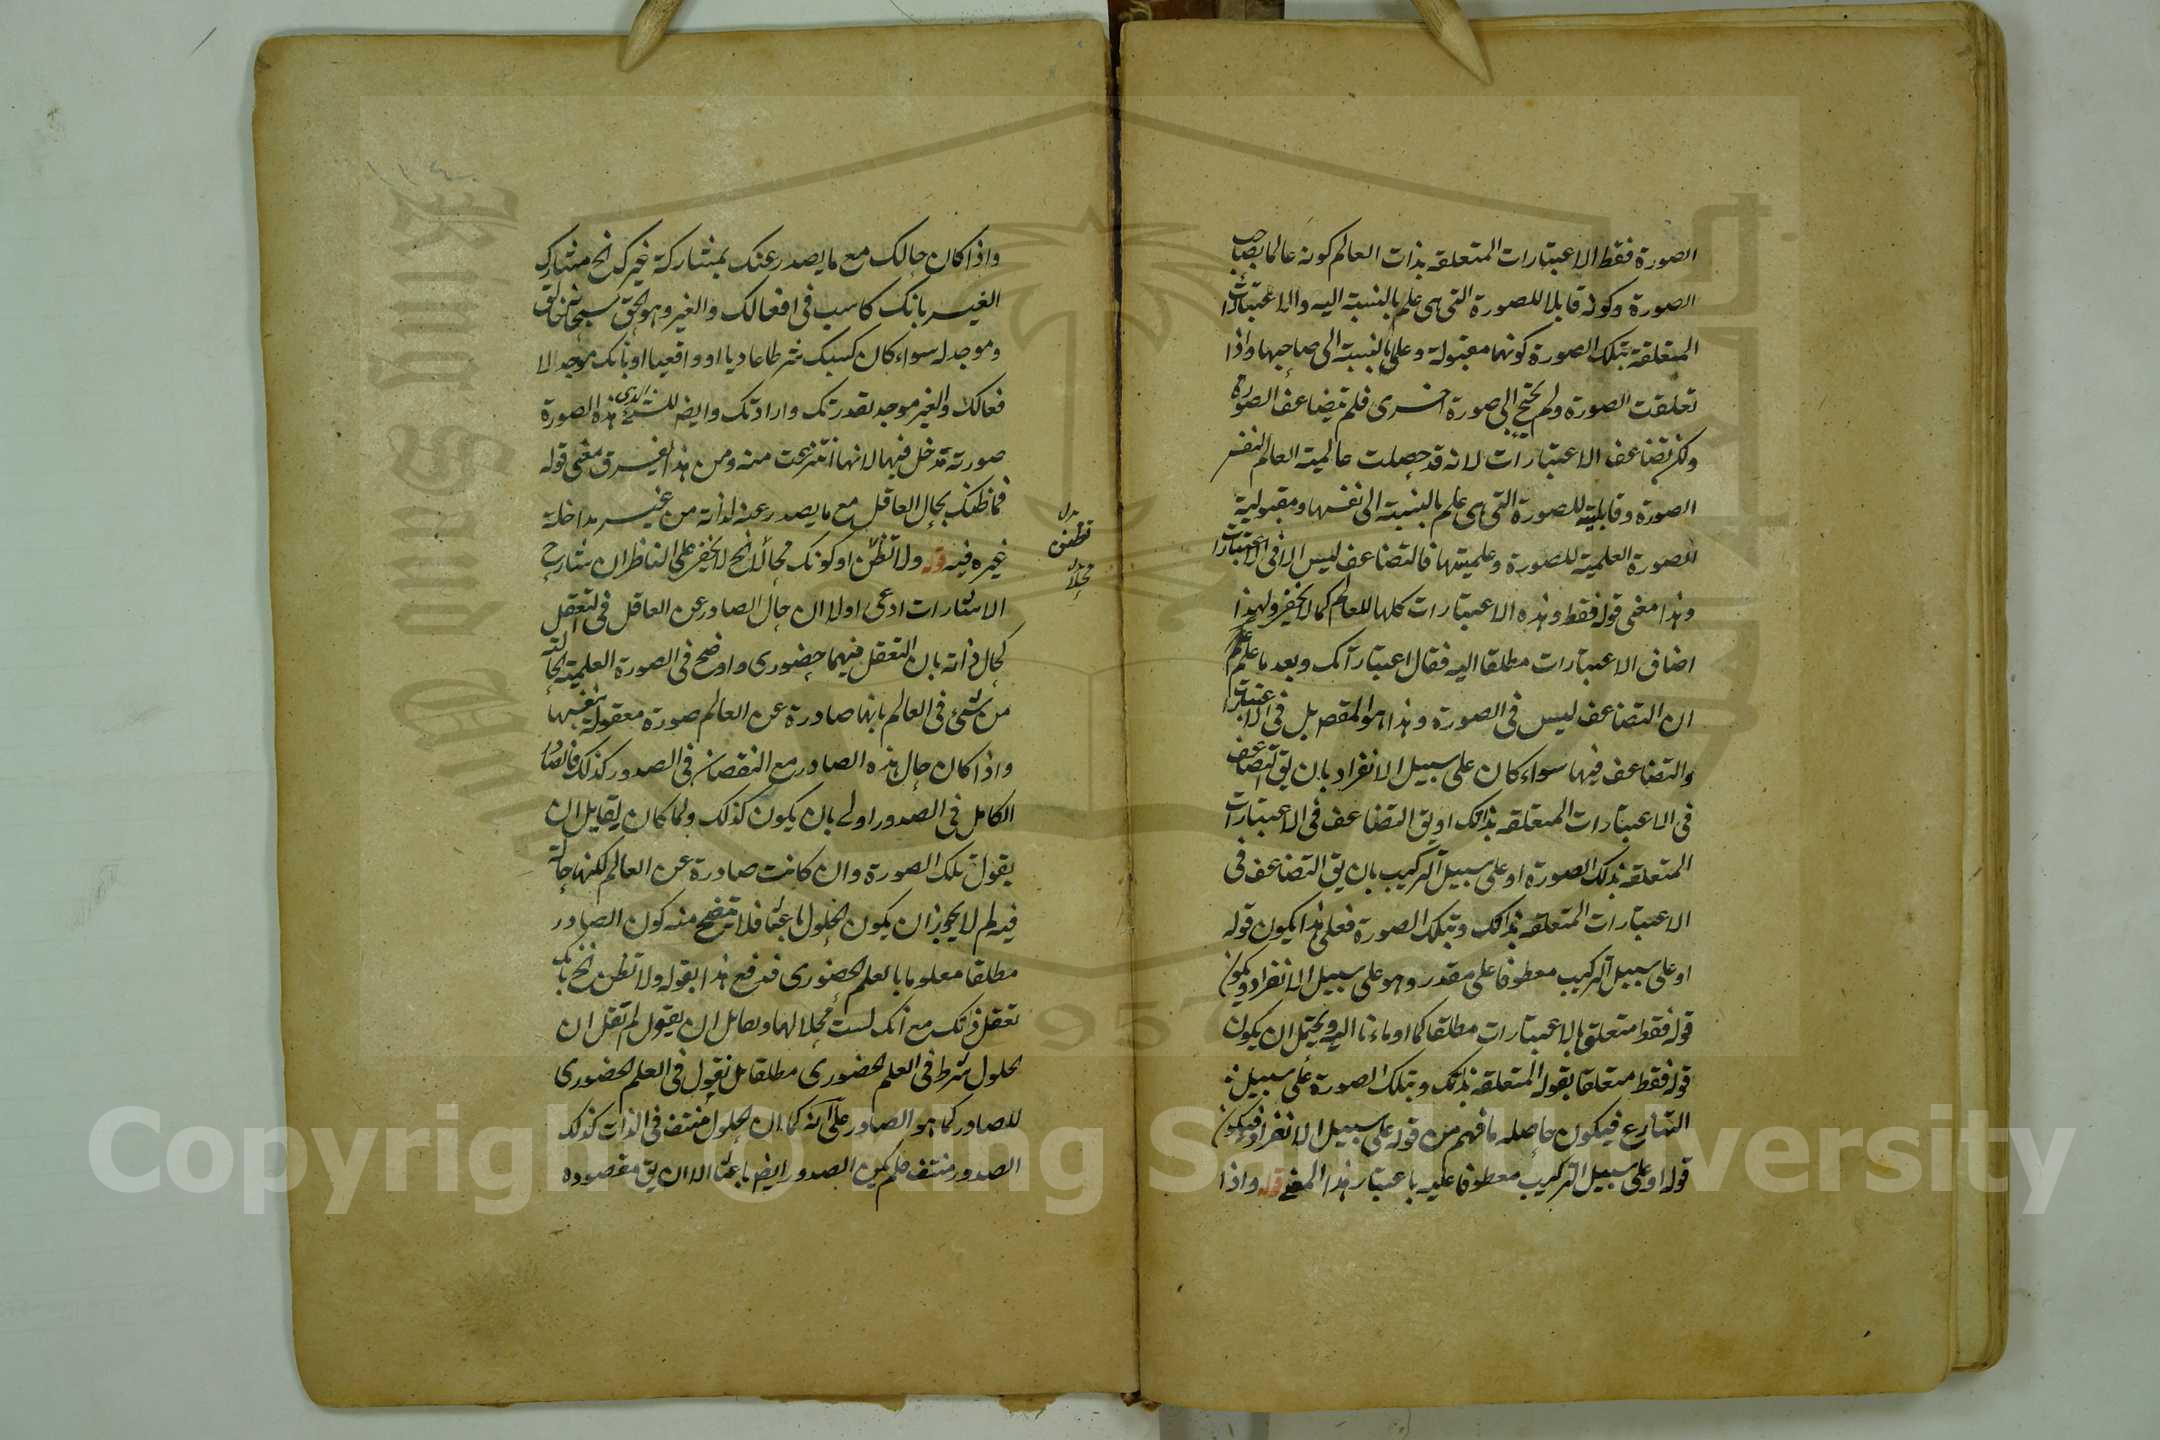 الصورة فقط الاعتبارات المتعلقه بذات العالم كونه عالما بصاحب
الصورة وكونه قابلا للصورة التى هى علم بالنسبة اليه والاعتبارات
المتعلقة بتلك الصورة كونها مقبولة وعلما بالنسبة الى صاحبها واذا
تعلقت الصورة ولم يحتج الى صورة اخرى فلم يتضاعف الصورة
ولكن تضاعف الاعتبارات لانه قد حصلت عالمية العالم لنفس
الصورة وقابليته للصورة التى هى علم بالنسبة الى نفسها ومقبولية
الصورة العلمية للصورة وعلميتها فالتضاعف ليس الا فى الاعتبارات
وهذا معنى قوله فقط وهذه الاعتبارات كلها للعالم كما لا يخفى ولهذا
اضاف الاعتبارات مطلقا اليه فقال اعتباراتك وبعد ما علم
ان التضاعف ليس فى الصورة وهذا هو المقصر بل فى الاعتبارات
والتضاعف فيها سواء كان على سبيل الانفراد بان يق التضاعف
فى الاعتبارات المتعلقه بذاتك او يق التضاعف فى الاعتبارات
المتعلقه بتلك الصورة او على سبيل التركيب بان يق التضاعف فى
الاعتبارات المتعلقه بذاتك وبتلك الصورة فعلى هذا يكون قوله
او على سبيل التركيب معطوفا على مقدر وهو على سبيل الانفراد ويكون
قوله فقط متعلق بالاعتبارات مطلقا كما اومأنا اليه ويحتمل ان يكون
قوله فقط متعلقا بقوله المتعلقه بذاتك وبتلك الصورة على سبيل
التنازع فيكون حاصله ما فهم من قوله على سبيل الانفراد فيكون
قوله او على سبيل التركيب معطوفا عليه باعتبار هذا المعنى قوله واذا
واذا كان حالك مع ما يصدر عنك بمشاركة غيرك نح مشارك
الغير بانك كاسب فى افعالك والغير وهو الحق سبحانه خالق
وموجد له سواء كان كسبك شرطا عاديا او واقعيا او بانك موجد الا
فعالك والغير موجد لقدرتك وارادتك وايضا للشئ الذى هذه الصورة
صورته مدخل فيها لانها انتزعت منه ومن هذا الغير ق معنى قوله
فما ظنك بحال العاقل مع ما يصدر عنه لذاته من غير مداخلة
غيره فيه قوله ولا تظنن او كونك محالا نح لا يخفى على الناظر ان شارح
بدل
تظنن
محلا
الاشارات ادعى اولا ان حال الصادر عن العاقل فى التعقل
كحال ذاته بان التعقل فيهما حضورى واوضح فى الصورة العلمية الحالة
من شئ فى العالم بانها صادرة عن العالم صورة معقولة بنفسها
واذا كان حال هذه الصادر مع النقصان فى الصدور كذلك فالصادر
الكامل فى الصدور اولى بان يكون كذلك ولما كان لقايل ان
يقول تلك الصورة وان كانت صادرة عن العالم لكنها حالة
فيه لم لا يجوز ان يكون الحلول باعثا فلا يتضح منه كون الصادر
مطلقا معلوما بالعلم الحضورى فدفع هذا بقوله ولا تظن نح بانك
تعقل ذاتك مع انك لست محلا لها ولقايل ان يقول لم نقل ان
الحلول شرط فى العلم الحضورى مطلقا بل نقول فى العلم الحضورى
للصادر كما هو الصادر على انه كما ان الحلول منتف فى الذات كذلك
الصدور منتف فلم يكن الصدور ايض باعثا الا ان يق مقصوده
Copyright © King Saud University
1957